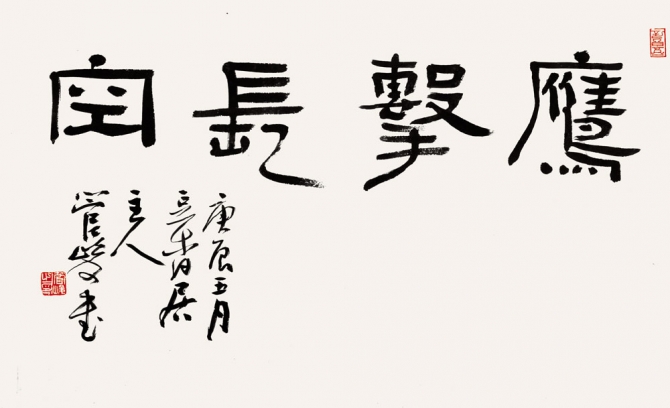 鷹擊長空
庚辰五月
豆香居
主人
管峻书